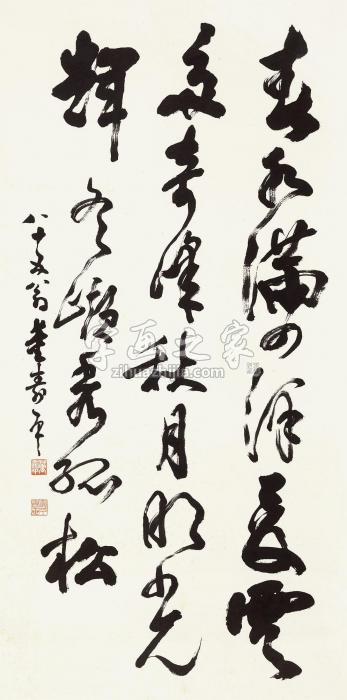 春水滿四澤夏雲
多奇峰秋月明光
輝冬嶺秀孤松
八十五翁董壽平
字画之家
zihuazhijia.com